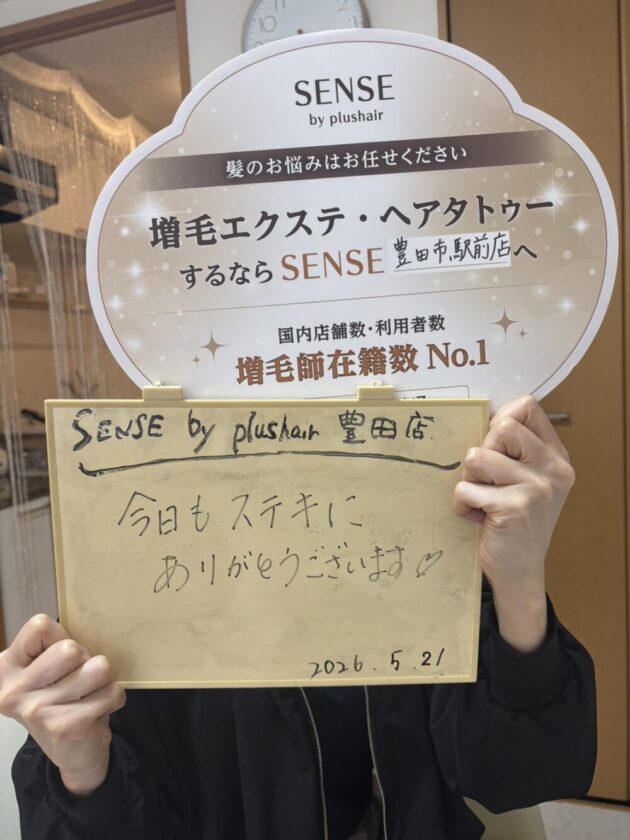 SENSE
by plushair
髪のお悩みはお任せください
増毛エクステ・ヘアタトゥー
するなら SENSE 豊田市駅前店へ
国内店舗数・利用者数
増毛師在籍数 No.1
SENSE by plushair 豊田店
今日もステキに
ありがとうございます♡
2026.5.21